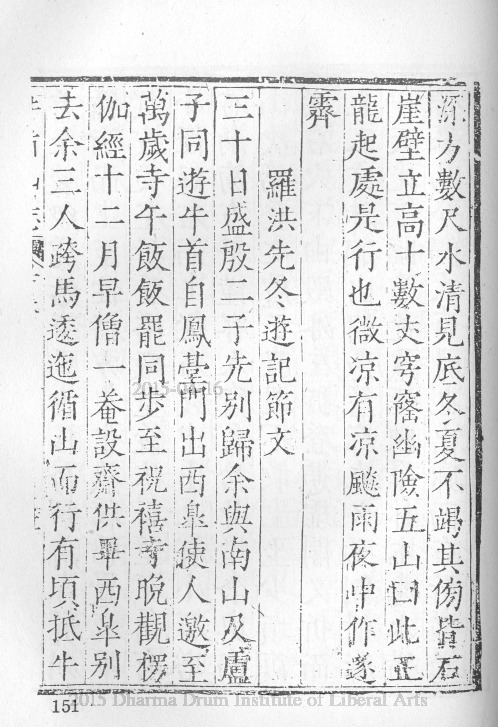 深方數尺水清見底冬夏不竭其傍皆石
崖壁立高十數丈穹窿幽險五山曰此正
龍起處是行也微凉有凉颸雨夜中作遂
霽
羅洪先冬遊記節文
三十日盛殷二子先別歸余與南山及盧
子同遊牛首自鳳臺門出西皐使人邀至
萬歲寺午飯飯罷同步至祝禧寺晚觀楞
伽經十二月早僧一菴設齋供畢西皐別
去余三人跨馬逶迤循山而行有頃抵牛
151
2015 Dharma Drum Institute of Liberal Arts